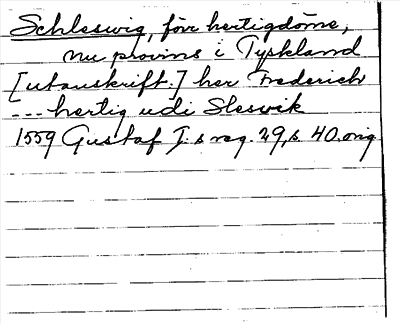 Schleswig, förr hertigdöme,
nu provins i Tyskland
[utanskrift:] her Frederich
... hertig udi Sleswik
1559 Gustaf I:s reg. 29, s. 40. orig.